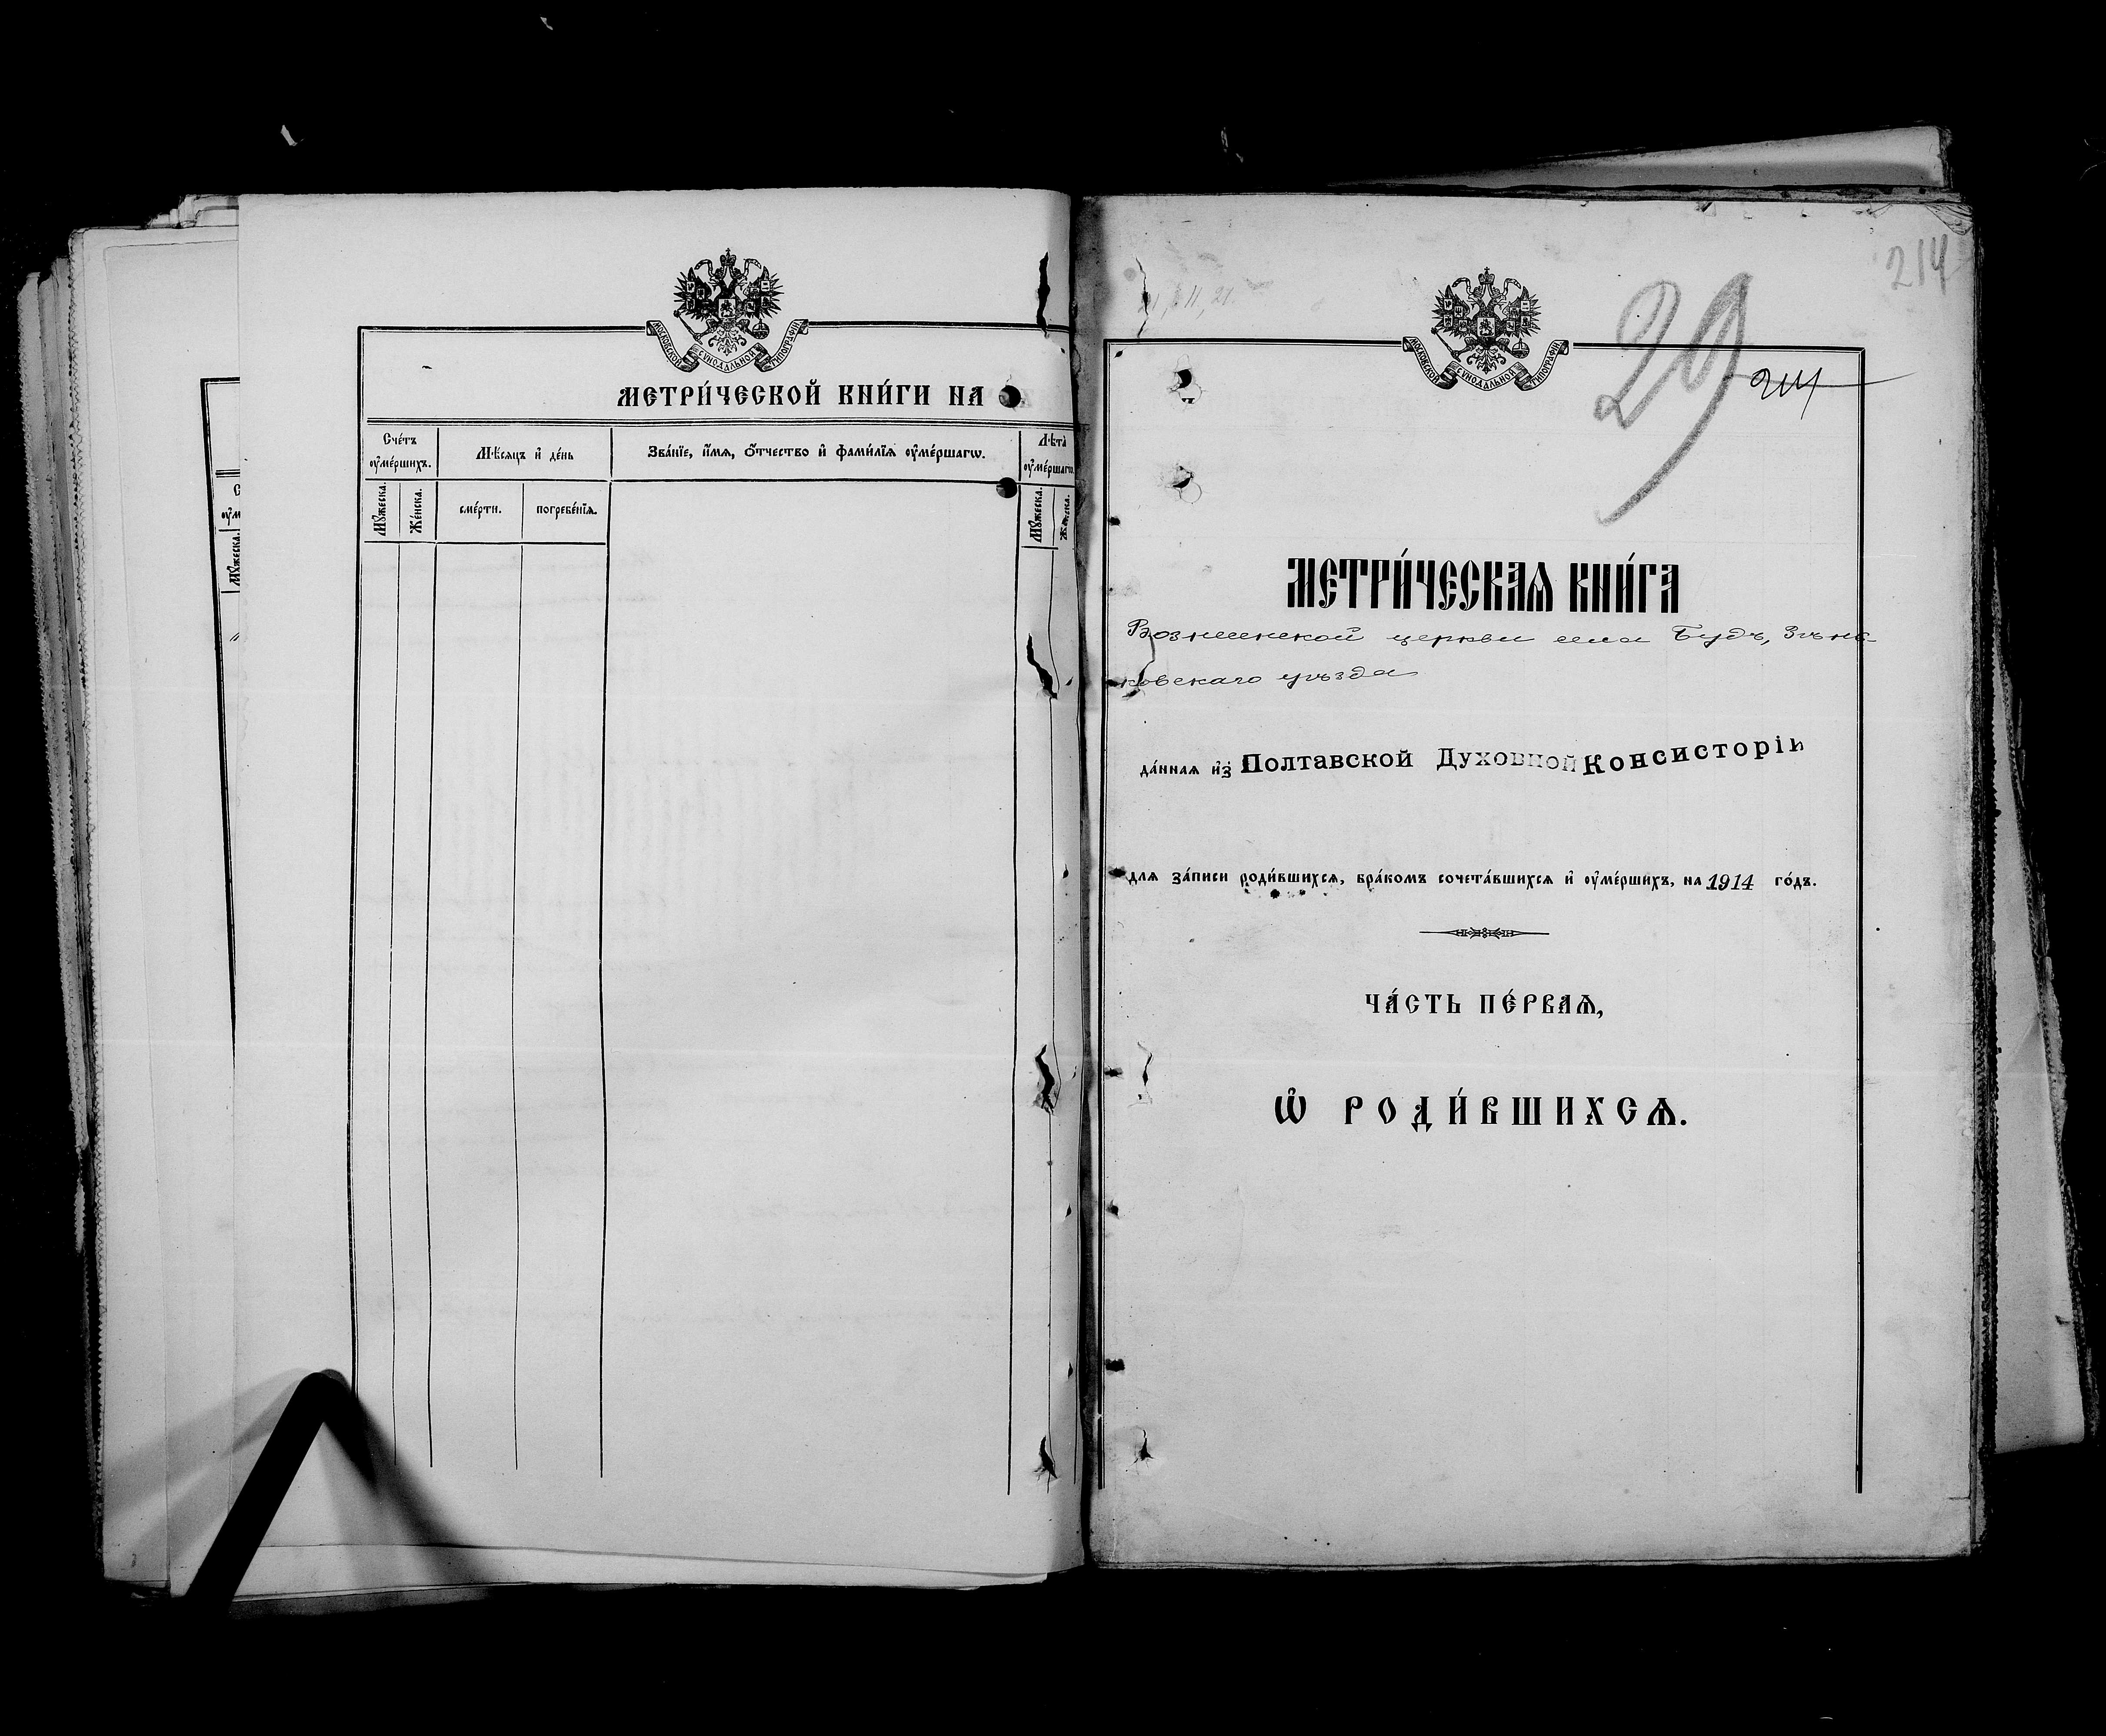 МОСКОВСКОЙ СѴНОДАЛЬНОЙ ТИПОГРАФІИ
МЕТРИ́ЧЕСКОЙ КНИ́ГИ НА
Сче́тъ оумершихъ.
Мѣ́сяцъ и де́нь
Зва́нїе, и́мѧ, ѻ́тчество и фами́лїѧ оуме́ршагѡ.
Лѣта̀ оуме́ршагѡ.
Мꙋ́жеска.
Же́нска.
сме́рти.
погребе́нїѧ.
Мꙋ́жеска.
Же́нска.
214
29
214
МОСКОВСКОЙ СѴНОДАЛЬНОЙ ТИПОГРАФІИ
МЕТРИ́ЧЕСКАѦ КНИ́ГА
Вознесенской церкви села Будъ, Зѣнь-
ковскаго уѣзда
да́ннаѧ из̾ Полтавской Духовной Консисторіи
длѧ за́писи роди́вшихсѧ, бра́комъ сочета́вшихсѧ и оуме́ршихъ, на 1914 го́дъ.
ЧА́СТЬ ПЕ́РВАѦ,
Ѡ РОДИ́ВШИХСѦ.